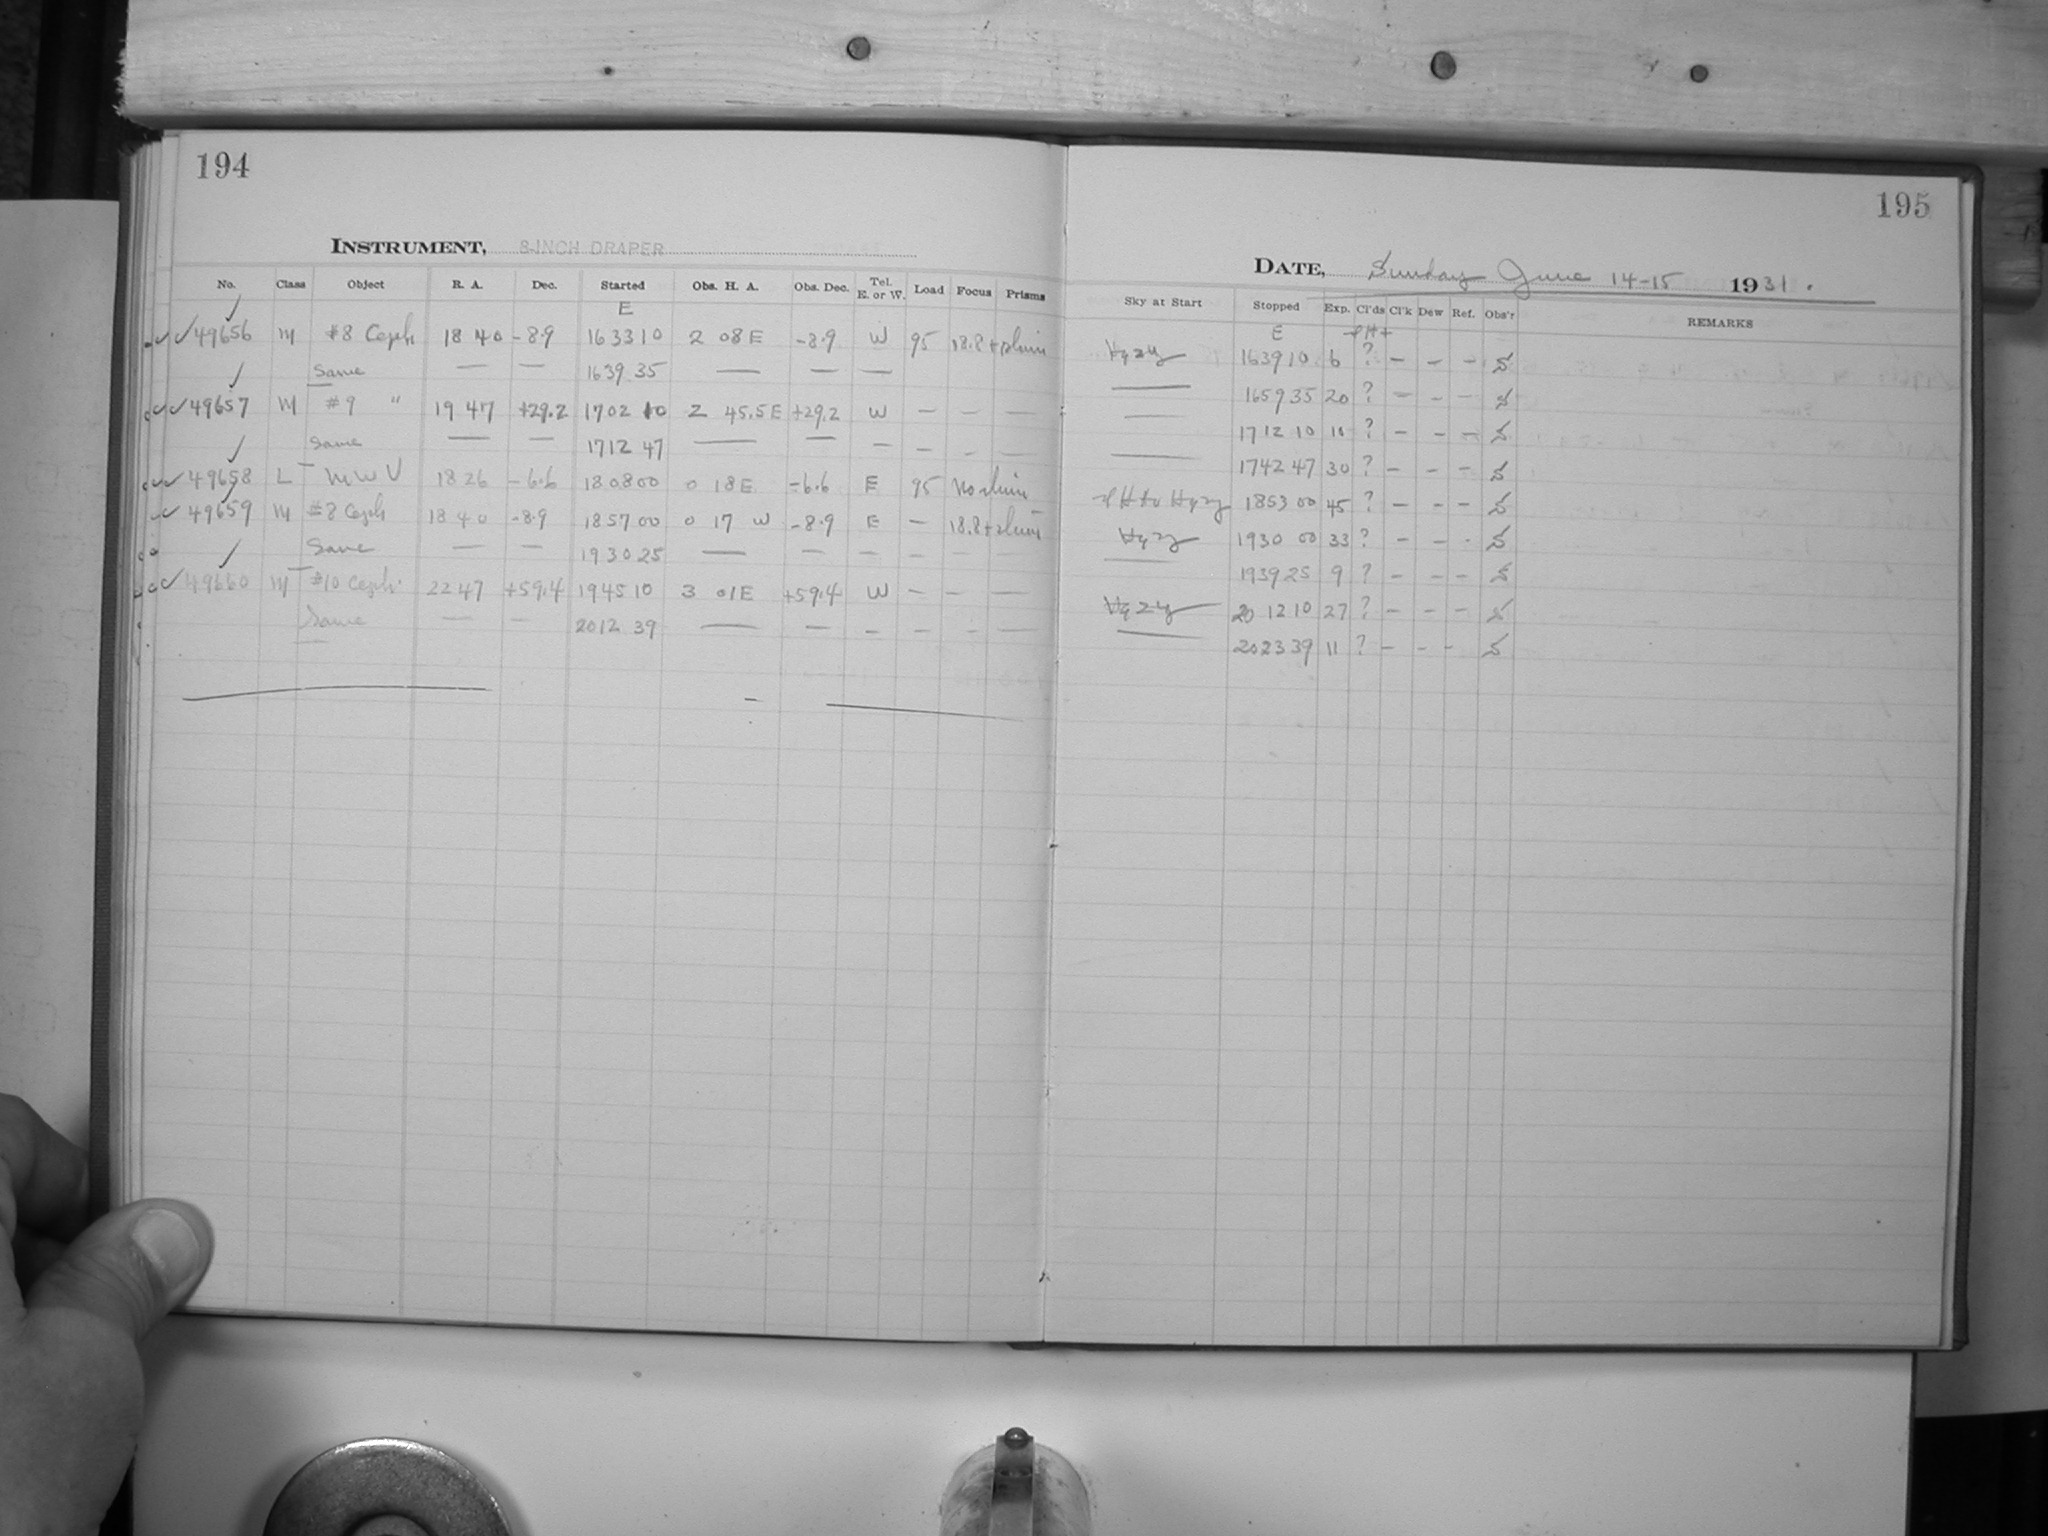 194
INSTRUMENT, 8-INCH DRAPER
No. Class Object R. A. Dec. Started Obs. H. A. Obs. Dec. Tel. E. or W. Load Focus Prisms
E
✓✓49656 M #8 Ceph 18 40 -8.9 16 33 10 2 08 E -8.9 W 95 18.8+
Same — — 16 39 35 — — —
✓✓49657 M #9 " 19 47 +29.2 17 02 10 2 45.5 E +29.2 W — — —
Same — — 17 12 47 — — — — — —
✓✓49658 L MWV 18 26 -6.6 18 08 00 0 18 E -6.6 E 95 No
✓49659 M #8 Ceph 18 40 -8.9 18 57 00 0 17 W -8.9 E — 18.8+
Same — — 19 30 25 — — — — — —
✓49660 M #10 Ceph. 22 47 +59.4 19 45 10 3 01 E +59.4 W — — —
Same — — 20 12 39 — — — — — —
195
DATE, Sunday June 14-15 1931.
Sky at Start Stopped Exp. Cl'ds Cl'k Dew Ref. Obs'r REMARKS
E
16 39 10 6 ? — — — S
— 16 59 35 20 ? — — — S
— 17 12 10 10 ? — — — S
— 17 42 47 30 ? — — — S
18 53 00 45 ? — — — S
19 30 00 33 ? — — - S
— 19 39 25 9 ? — — — S
20 12 10 27 ? — — — S
— 20 23 39 11 ? — — — S